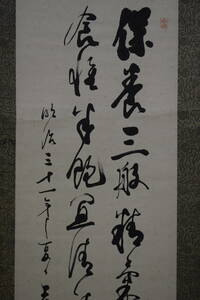 保養三般精氣
食惟半飽宜清
明治三十一年